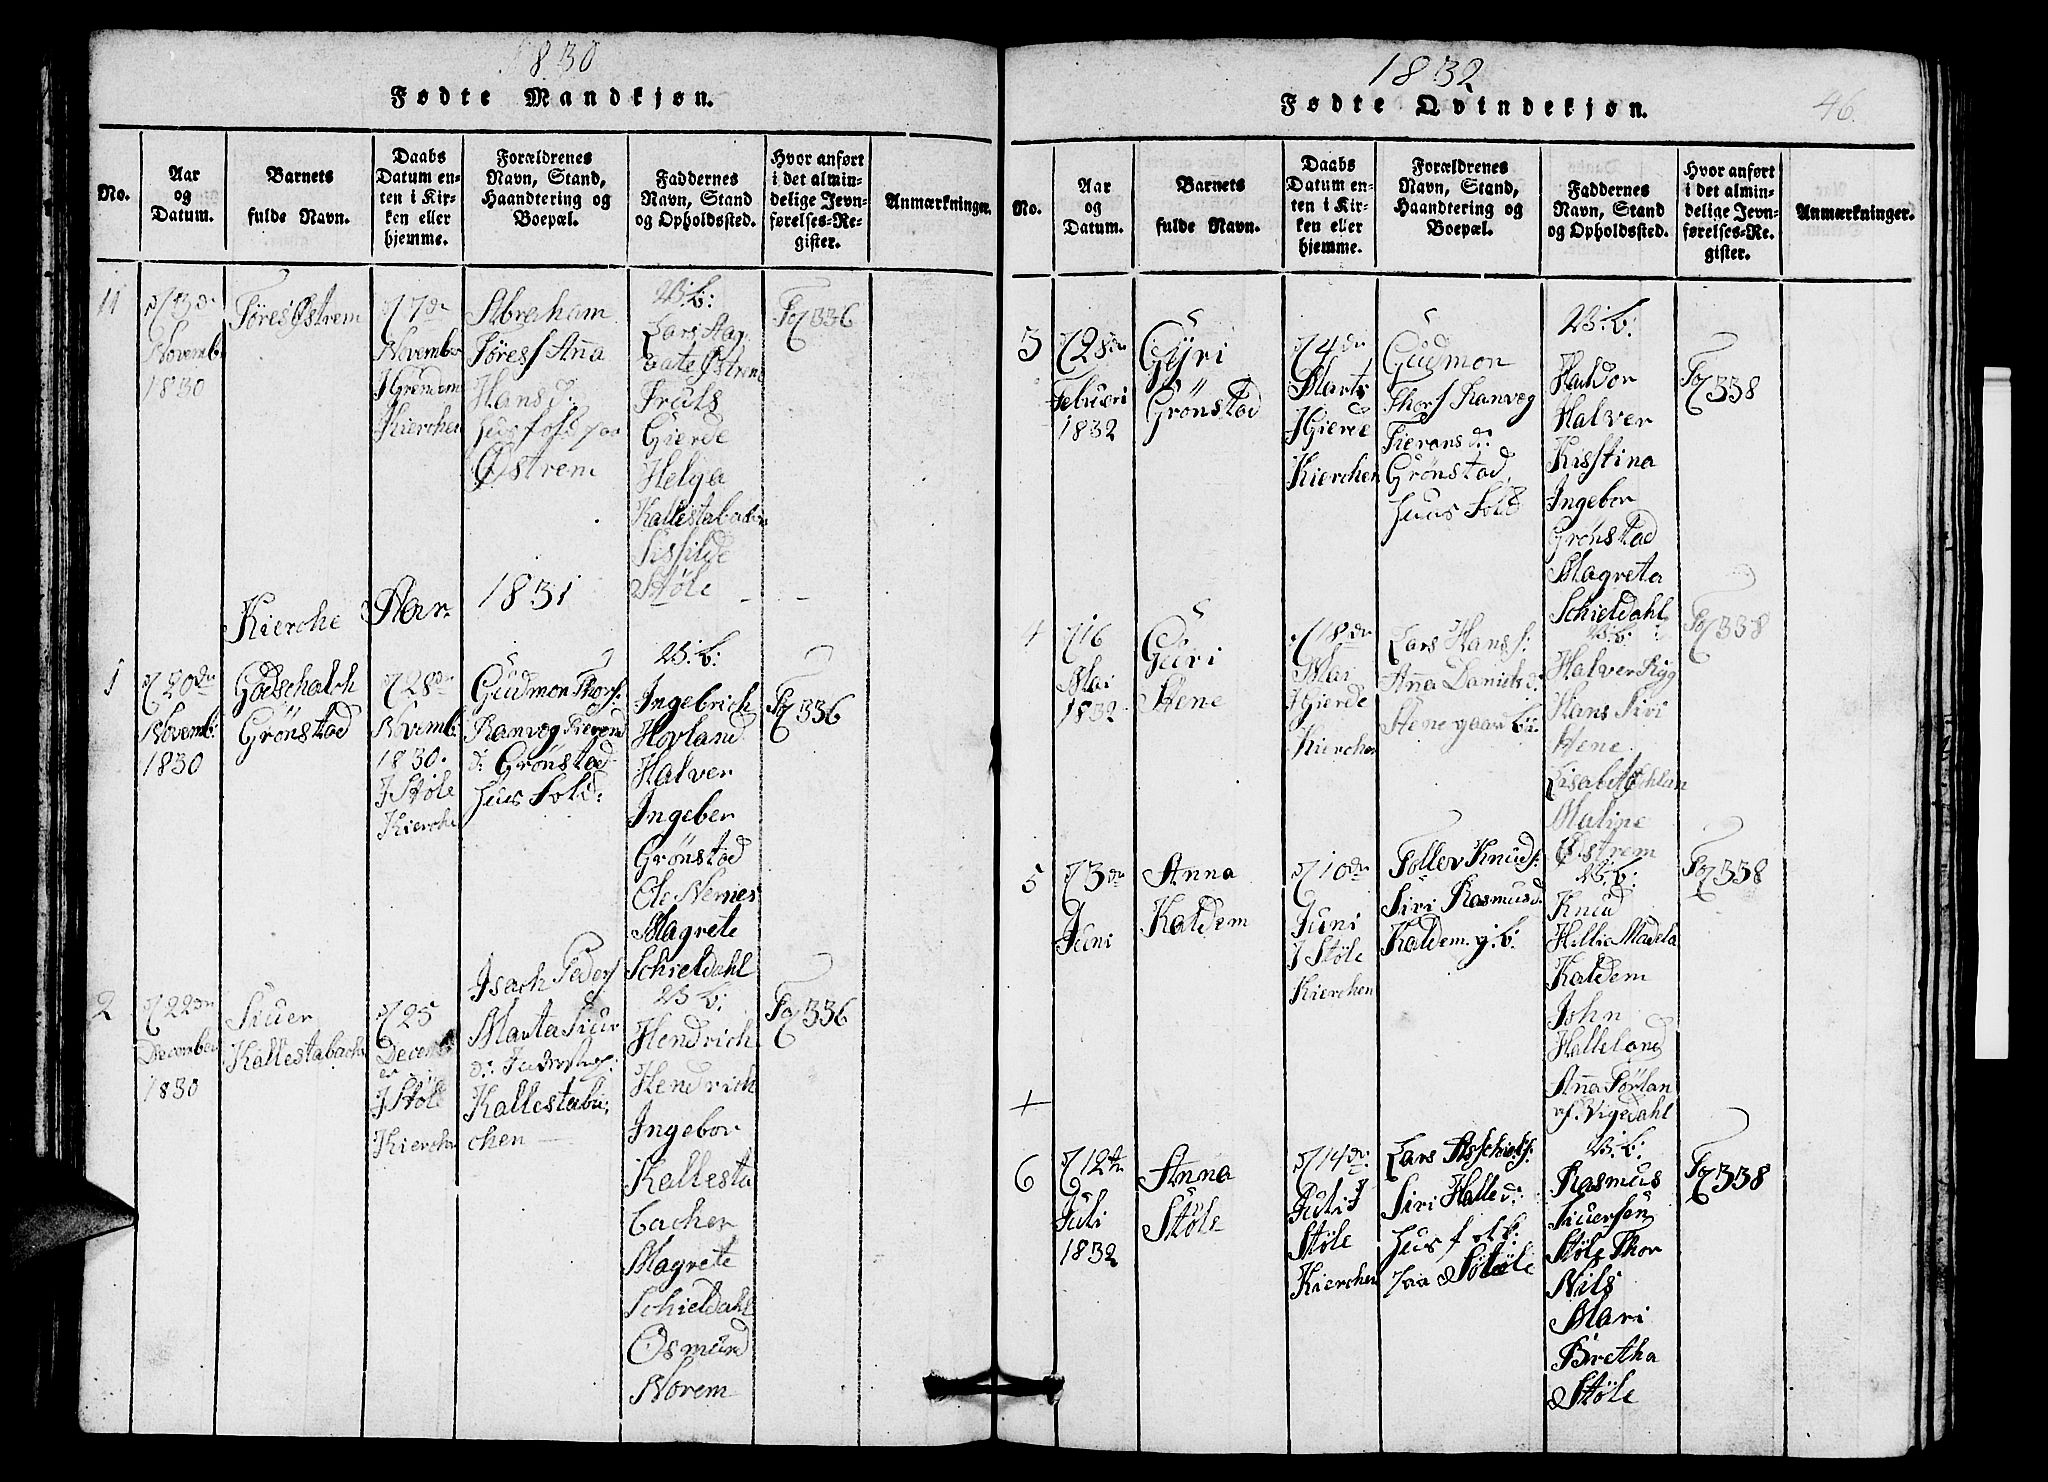 1830
Fødte Mandkjøn.
No.
Aar
og
Datum.
Barnets
fulde Navn.
Daabs
Datum en-
ten i Kir-
ken eller
hjemme.
Forældrenes
Navn, Stand,
Haandtering og
Boepæl.
Faddernes
Navn, Stand
og Opholdssted.
Hvor anført
i det almin-
delige Jevn-
førelses-Re-
gister.
Anmærkninger.
11
13de
Novemb
1830
Tøres Østrem
17de
November
Grendem
Kierchen
Abreham
Tøress Anna
Hans d:
Østrem
B. b:
Lars Aag
Østrem
Truls
Gierde
Helga
Kallestabacken
Sissilde
Støle
336
Kierche Aar 1831
1
20de
Novemb:
1830
Godschalch
Grönstad
28de
Novemb.
1830.
J Støle
Kierche
Gudmon Thors:
Ranveg
d: Grönstad
huus fold:
B. b:
Ingebrich
Hovland
Halver
Ingeber
Grönstad
Ole Nernes
Magrete
Schieldahl
336
2
22de
December
1830
Siuer
Kallestabache
25
Decemb
er
J Støle
Kierchen
Isach Peders
Marta Siur
d:
Kallestaba
chen
B. b:
Hendrich
Hendrich
Ingebor
Kallesta
bacher
Magrete
Schieldahl
Osmund
Norem
336
1832
46.
Fødte Qvindekjøn.
No.
Aar
og
Datum.
Barnets
fulde Navn.
Daabs
Datum en-
ten i Kir-
ken eller
hjemme.
Forældrenes
Navn, Stand,
Haandtering og
Boepæl.
Faddernes
Navn, Stand
og Opholdssted.
Hvor anført
i det almin-
delige Jevn-
førelses-Re-
gister.
Anmærkninger.
3
28de
Februari
1832
Gÿri
Grönstad
4de
Marts
J Gierde
Kierchen
Gudmon
Thors Ranveg
Sierans d:
Grönstad
huus Fold
B. b:
Haldor
Halver
Kisstina
Ingebor
Grönstad
Magreta
Schieldahl
338
4
16
Mai
1832
Guri
Hene
18de
Mai
J Gierde
Kierchen
Lars Hans s:
Anna Daniels d:
Hene gaard b:
B. b:
Halver Rigg
Hans Siri
Hene
Lisabet Øchlan
Maline
Østrem
338
5
3de
Juni
Anna
Kaldem
10de
Juni
J Støle
Kierchen
Tollev Knuds:
Siri Rasmus d.
Kaldem g: b:
B. b:
Knud
Hillis Madela
Kaldem
John
Halleland
Anna Törlan
Vigedahl
338
+
6
12te
Juli
1832
Anna
Støle
14de
Juli J
Støle
Kierchen
Lars Asschiels:
Siri Halle d:
huus folk:
paa Støle
B. b:
Rasmus
Siuersen
Støle Thor
Nils
Mari
Bretha
Støle
338